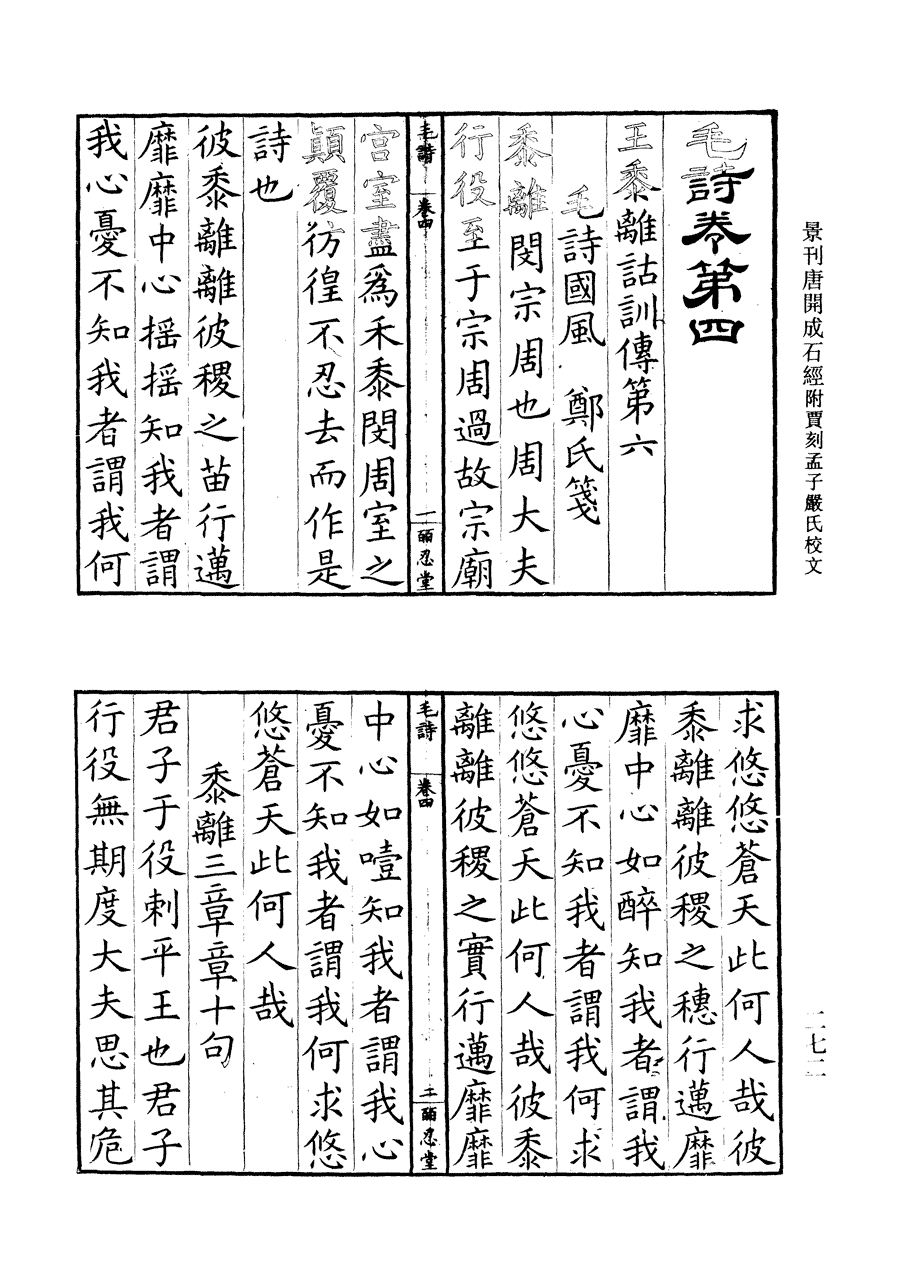 景刊唐開成石經附賈刻孟子嚴氏校文
毛詩卷第四
王黍離詁訓傳第六
毛詩國風 鄭氏箋
黍離閔宗周也周大夫
行役至于宗周過故宗廟
毛詩 卷四 一 皕忍堂
宮室盡爲禾黍閔周室之
顛覆彷徨不忍去而作是
詩也
彼黍離離彼稷之苗行邁
靡靡中心揺揺知我者謂
我心憂不知我者謂我何
求悠悠蒼天此何人哉彼
黍離離彼稷之穗行邁靡
靡中心如醉知我者謂我
心憂不知我者謂我何求
悠悠蒼天此何人哉彼黍
離離彼稷之實行邁靡靡
毛詩 卷四 二 皕忍堂
中心如噎知我者謂我心
憂不知我者謂我何求悠
悠蒼天此何人哉
黍離三章章十句
君子于役刺平王也君子
行役無期度大夫思其危
二七二